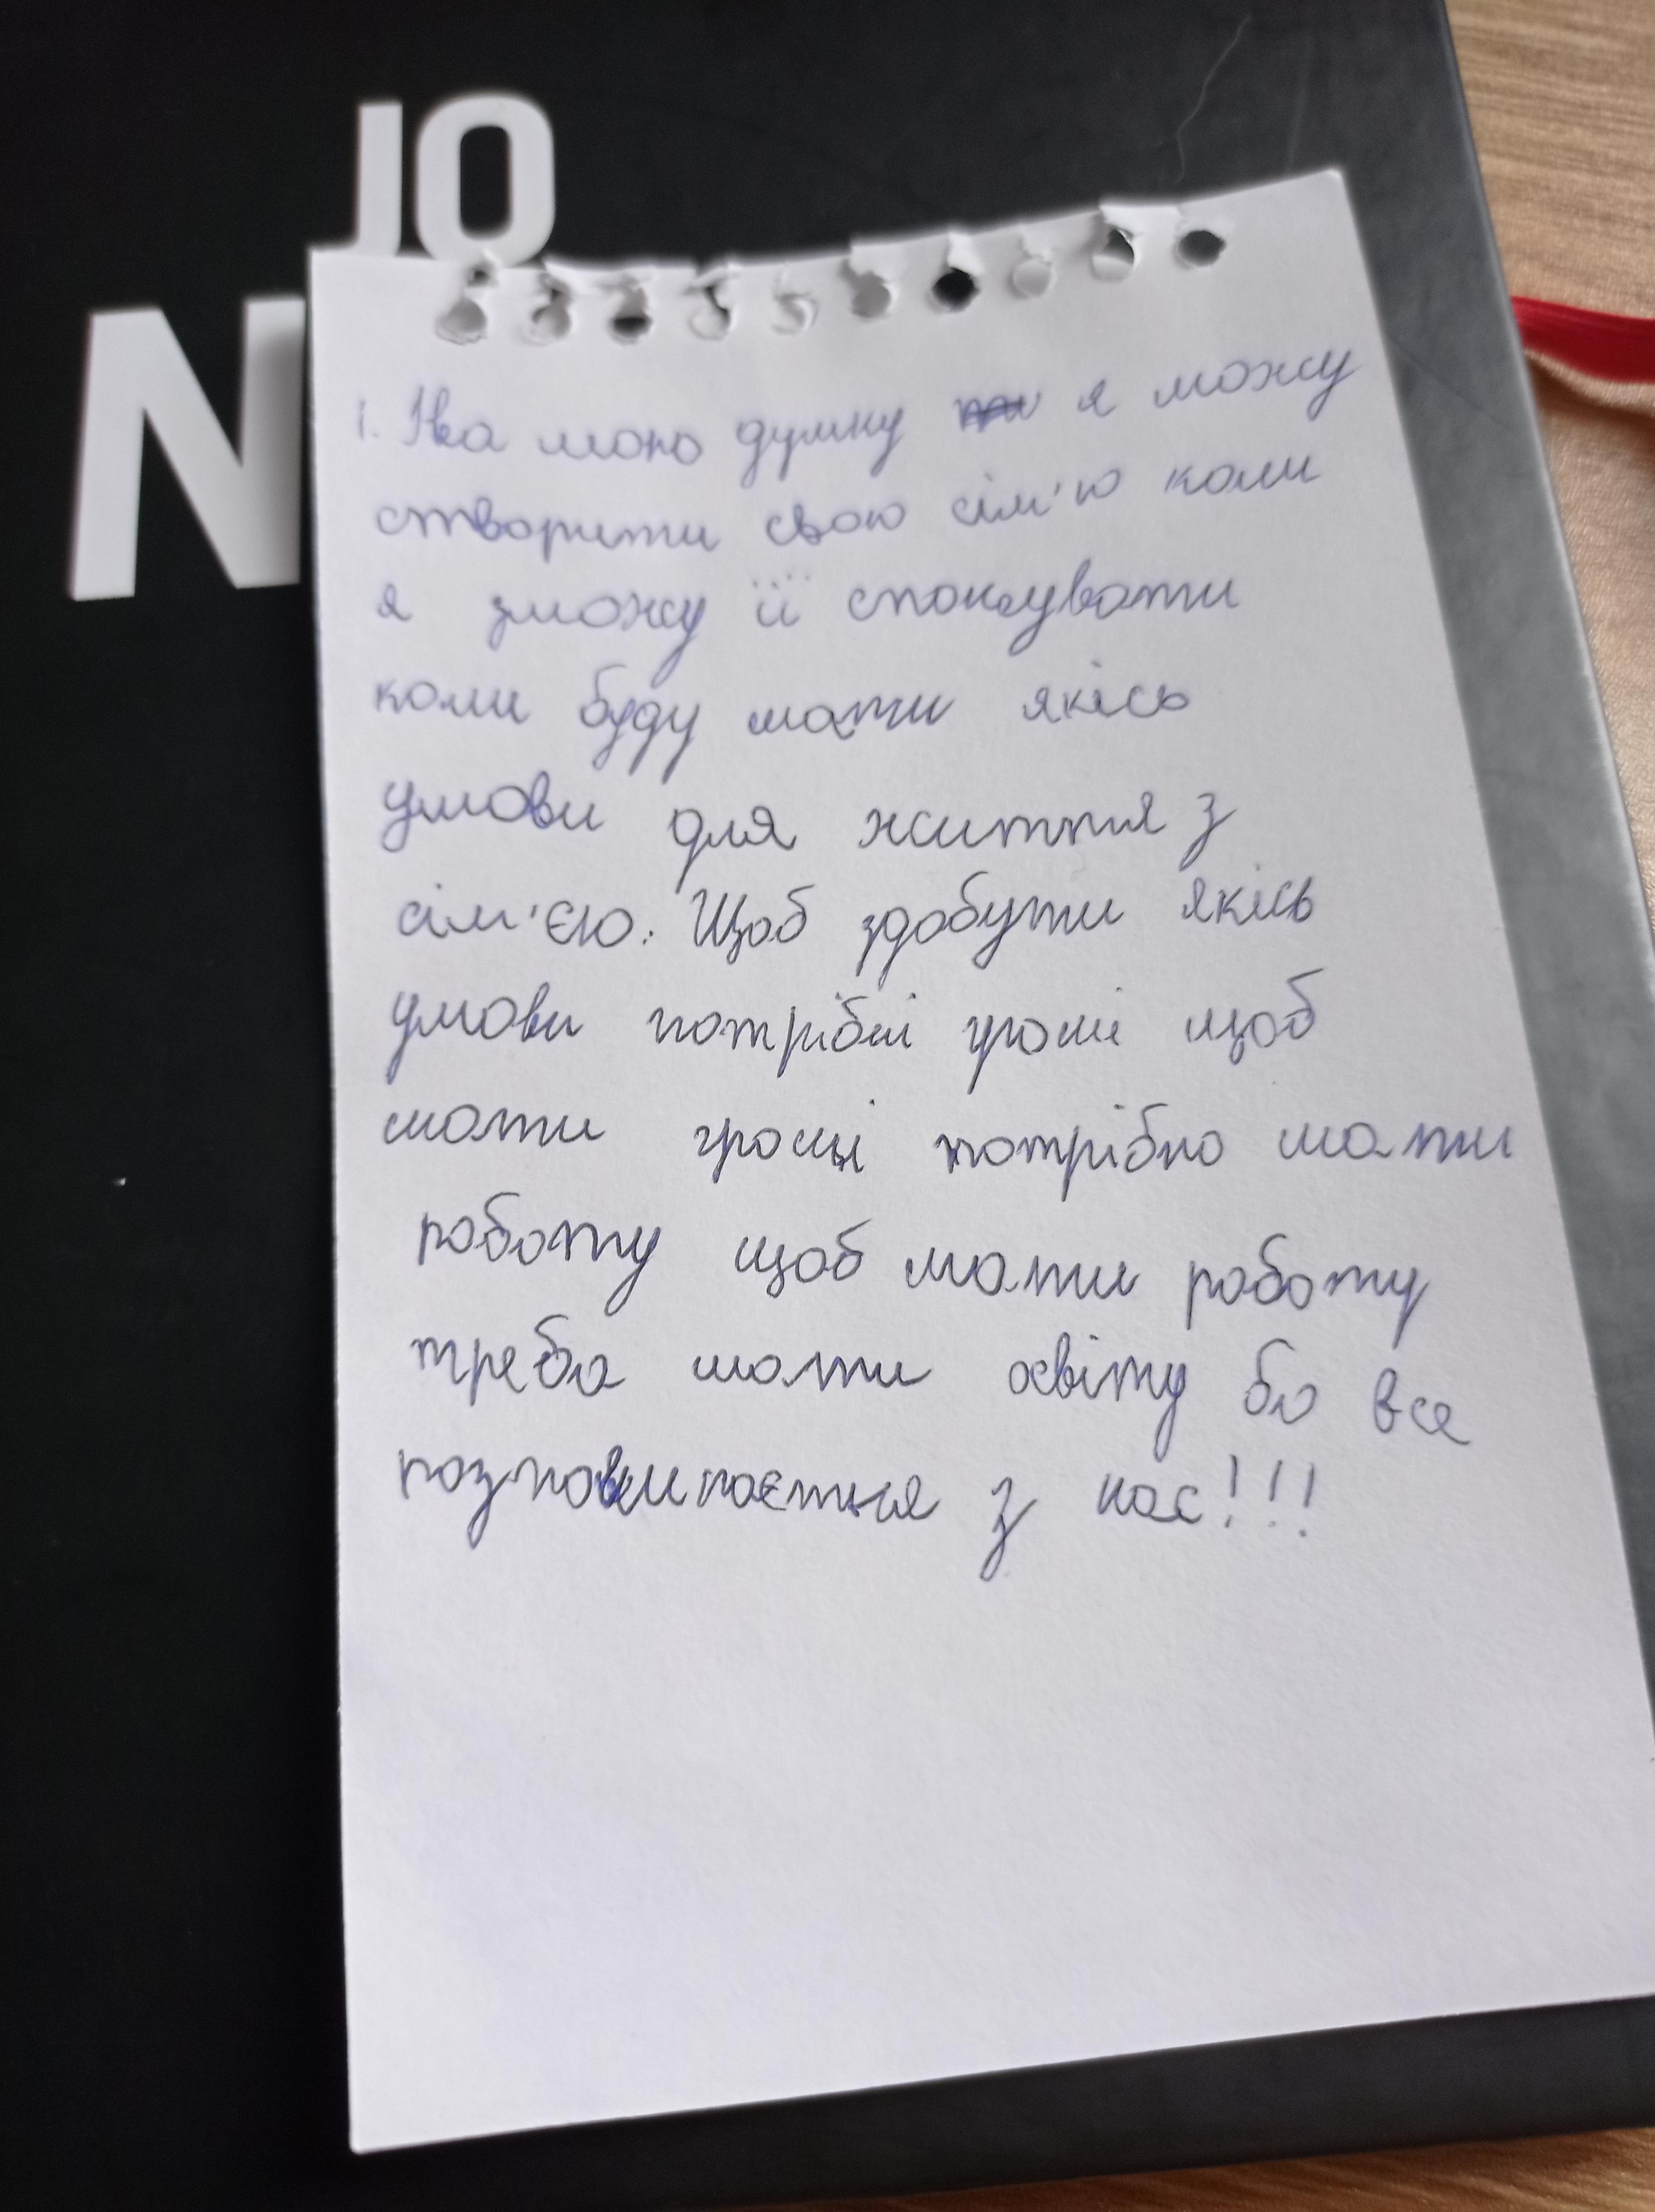 JO
N
1. На мою думку я можу
створити свою сім'ю коли
я зможу її
коли буду мати якісь
умови для життя з
сім'єю. Щоб здобути якісь
умови потрібні гроші щоб
мати гроші потрібно мати
роботу щоб мати роботу
треба мати освіту бо все
з нас!!!